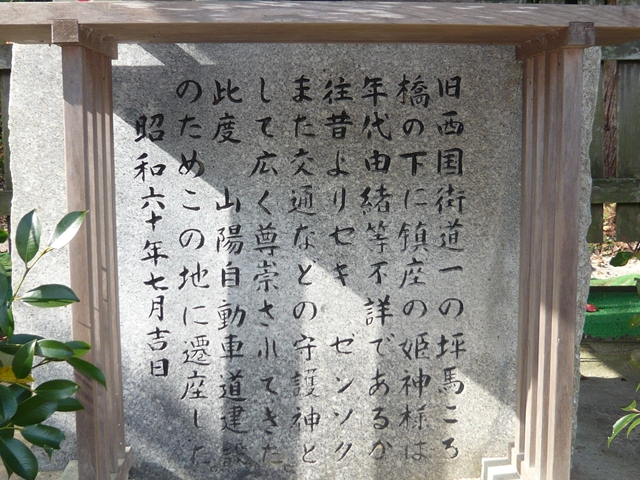 旧西国街道一の坪馬ころ
橋の下に鎮座の姫神様は
年代由緒等不詳であるが
往昔よりセキ　ゼンソク
また交通などの守護神と
して広く尊崇されてきた
此度　山陽自動車道建設
のためこの地に遷座した
昭和六十年七月吉日